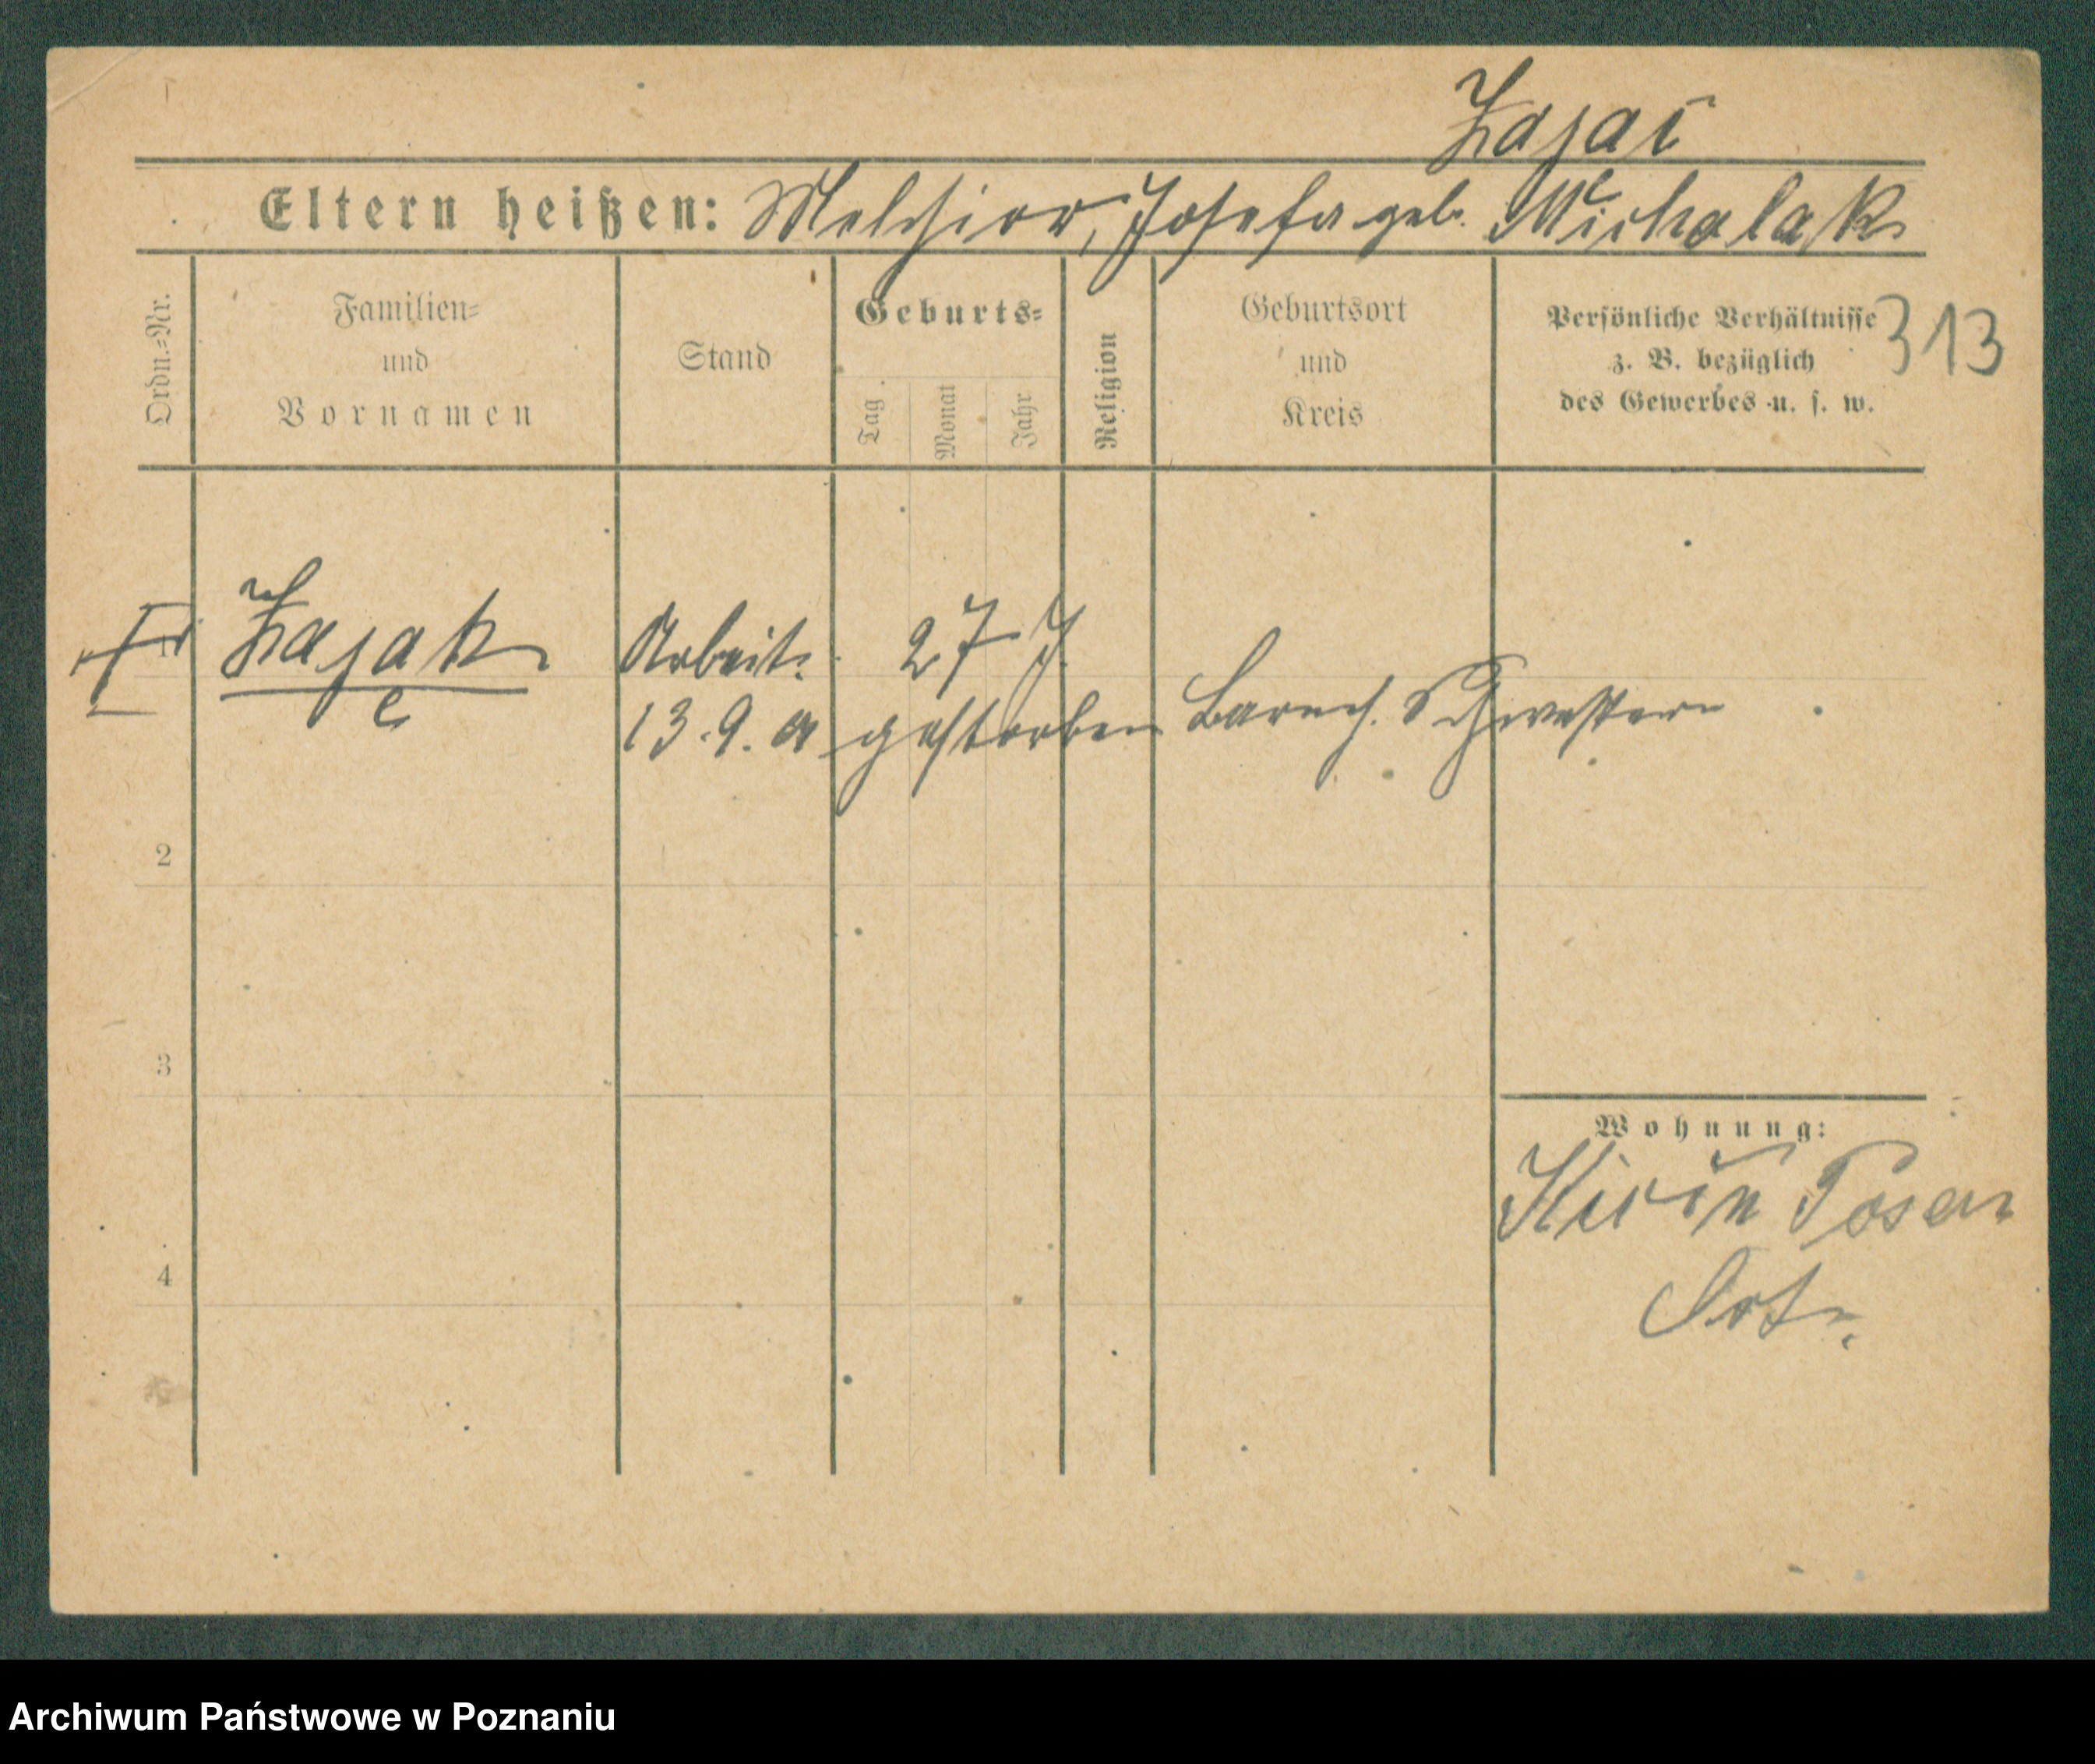 Zając
Eltern heißen: Melchior, Josefa geb. Michalak
Ordn.-Nr.
Familien-
und
Vornamen
Stand
Geburts-
Tag
Monat
Jahr
Religion
Geburtsort
und
Kreis
Persönliche Verhältnisse
z. B. bezüglich
des Gewerbes u. s. w.
313
1 Zajak Arbeit. 27 J.
c
13.9. gestorben Barmh. Schwestern
2
3
4
Wohnung:
Posen